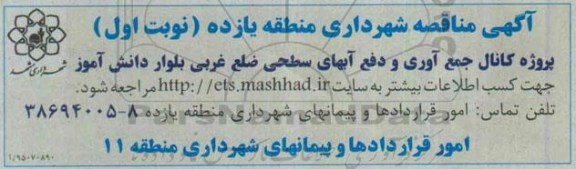 آگهی مناقصه شهرداری منطقه یازده (نوبت اول)
پروژه کانال جمع آوری و دفع آبهای سطحی ضلع غربی بلوار دانش آموز
جهت کسب اطلاعات بیشتر به سایت http://ets.mashhad.ir مراجعه شود.
تلفن تماس: امور قراردادها و پیمانهای شهرداری منطقه یازده ۸-۳۸۶۹۴۰۰۵
امور قراردادها و پیمانهای شهرداری منطقه ۱۱
شهرداری مشهد
۱/۹۵۰۷۰۸۹۰